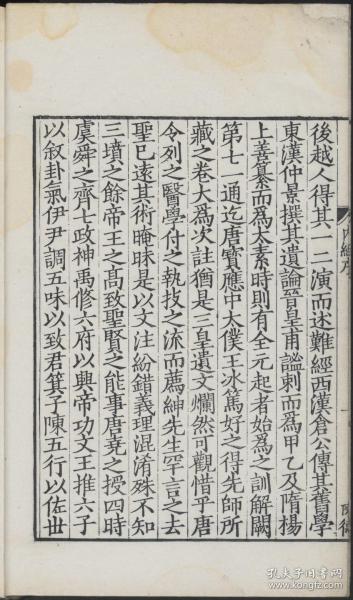 後越人得其一二演而述難經西漢倉公傳其舊學
東漢仲景撰其遺論晉皇甫謐刺而為甲乙及隋楊
上善纂而為太素時則有全元起者始為之訓解闕
第七一通迄唐寶應中太僕王冰篤好之得先師所
藏之卷大為次註猶是三皇遺文爛然可觀惜乎唐
令列之醫學付之執技之流而薦紳先生罕言之去
聖已遠其術晻昧是以文注紛錯義理混淆殊不知
三墳之餘帝王之高致聖賢之能事唐堯之授四時
虞舜之齊七政神禹修六府以興帝功文王推六子
以敘卦氣伊尹調五味以致君箕子陳五行以佐世
內經序
一
孔夫子旧书网